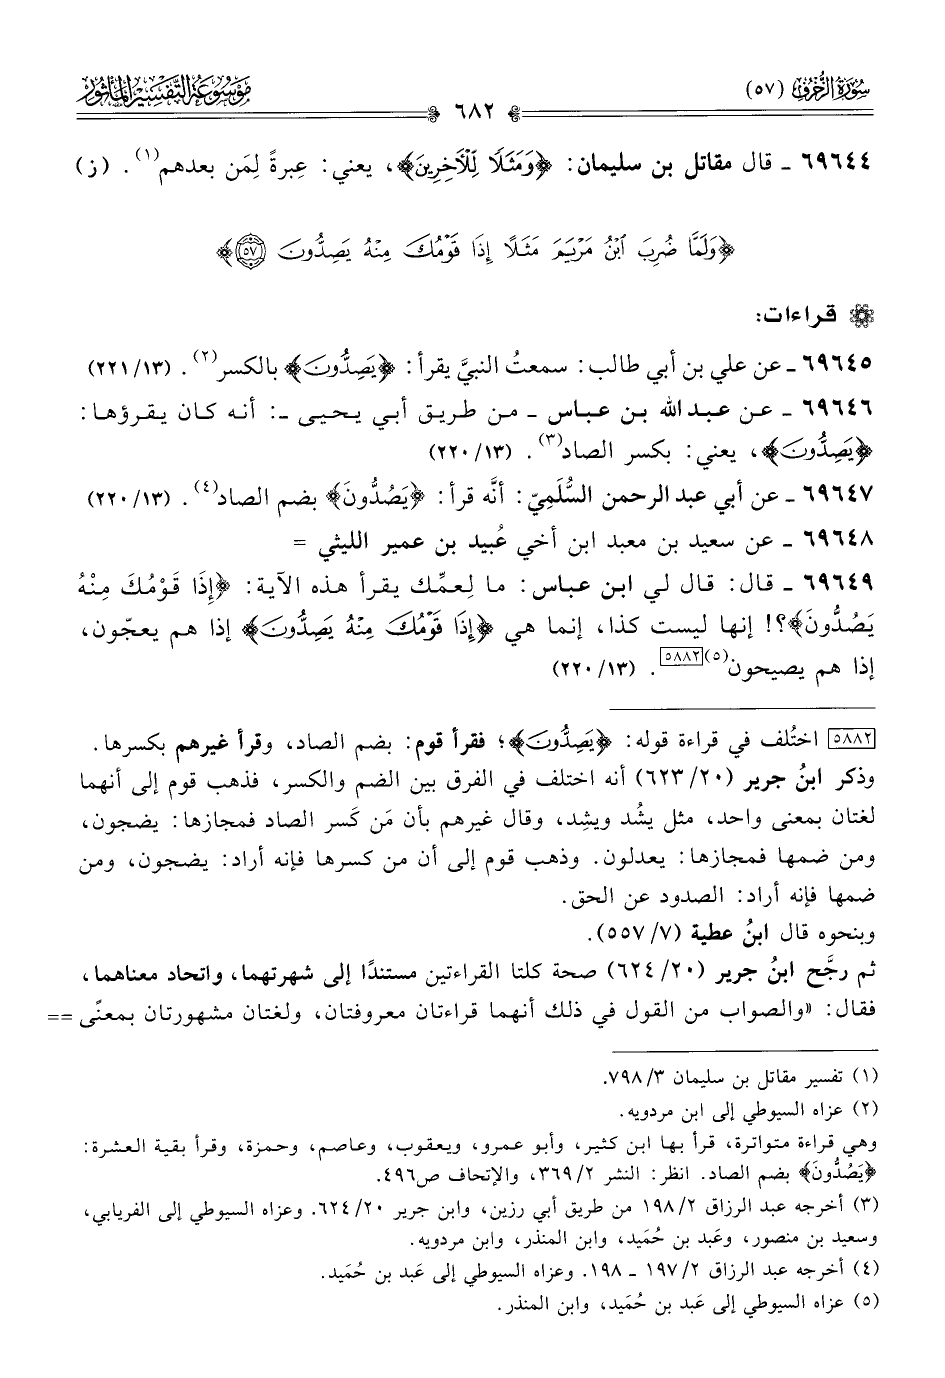 سُورَةُ الزُّخْرُفِ (٥٧)
٦٨٢
مَوْسُوعَةُ التَّفْسِيرِ المَأْثُور
٦٩٦٤٤ ـ قال مقاتل بن سليمان: ﴿وَمَثَلًا لِّلْآخِرِينَ﴾، يعني: عِبرةً لِمَن بعدهم(١). (ز)
﴿وَلَمَّا ضُرِبَ ابْنُ مَرْيَمَ مَثَلًا إِذَا قَوْمُكَ مِنْهُ يَصِدُّونَ ٥٧﴾
قراءات:
٦٩٦٤٥ ـ عن علي بن أبي طالب: سمعتُ النبيَّ يقرأ: ﴿يَصِدُّونَ﴾ بالكسر(٢). (١٣/ ٢٢١)
٦٩٦٤٦ ـ عن عبد الله بن عباس ـ من طريق أبي يحيى ـ: أنه كان يقرؤها:
﴿يَصِدُّونَ﴾، يعني: بكسر الصاد(٣). (١٣/ ٢٢٠)
٦٩٦٤٧ ـ عن أبي عبد الرحمن السُّلَمِيّ: أنَّه قرأ: ﴿يَصُدُّونَ﴾ بضم الصاد(٤). (١٣/ ٢٢٠)
٦٩٦٤٨ ـ عن سعيد بن معبد ابن أخي عُبيد بن عمير الليثي =
٦٩٦٤٩ ـ قال: قال لي ابن عباس: ما لِعمِّك يقرأ هذه الآية: ﴿إِذَا قَوْمُكَ مِنْهُ
يَصُدُّونَ﴾؟! إنها ليست كذا، إنما هي ﴿إِذَا قَوْمُكَ مِنْهُ يَصِدُّونَ﴾ إذا هم يعجّون،
إذا هم يصيحون(٥)[٥٨٨٢]. (١٣/ ٢٢٠)
[٥٨٨٢] اختُلف في قراءة قوله: ﴿يَصِدُّونَ﴾؛ فقرأ قوم: بضم الصاد، وقرأ غيرهم بكسرها.
وذكر ابنُ جرير (٢٠/ ٦٢٣) أنه اختلف في الفرق بين الضم والكسر، فذهب قوم إلى أنهما
لغتان بمعنى واحد، مثل يشُد ويشِد، وقال غيرهم بأن مَن كَسر الصاد فمجازها: يضجون،
ومن ضمها فمجازها: يعدلون. وذهب قوم إلى أن من كسرها فإنه أراد: يضجون، ومن
ضمها فإنه أراد: الصدود عن الحق.
وبنحوه قال ابنُ عطية (٧/ ٥٥٧).
ثم رجَّح ابنُ جرير (٢٠/ ٦٢٤) صحة كلتا القراءتين مستندًا إلى شهرتهما، واتحاد معناهما،
فقال: «والصواب من القول في ذلك أنهما قراءتان معروفتان، ولغتان مشهورتان بمعنًى ==
(١) تفسير مقاتل بن سليمان ٣/ ٧٩٨.
(٢) عزاه السيوطي إلى ابن مردويه.
وهي قراءة متواترة، قرأ بها ابن كثير، وأبو عمرو، ويعقوب، وعاصم، وحمزة، وقرأ بقية العشرة:
﴿يَصُدُّونَ﴾ بضم الصاد. انظر: النشر ٢/ ٣٦٩، والإتحاف ص٤٩٦.
(٣) أخرجه عبد الرزاق ٢/ ١٩٨ من طريق أبي رزين، وابن جرير ٢٠/ ٦٢٤. وعزاه السيوطي إلى الفريابي،
وسعيد بن منصور، وعَبد بن حُمَيد، وابن المنذر، وابن مردويه.
(٤) أخرجه عبد الرزاق ٢/ ١٩٧ ـ ١٩٨. وعزاه السيوطي إلى عَبد بن حُمَيد.
(٥) عزاه السيوطي إلى عَبد بن حُمَيد، وابن المنذر.